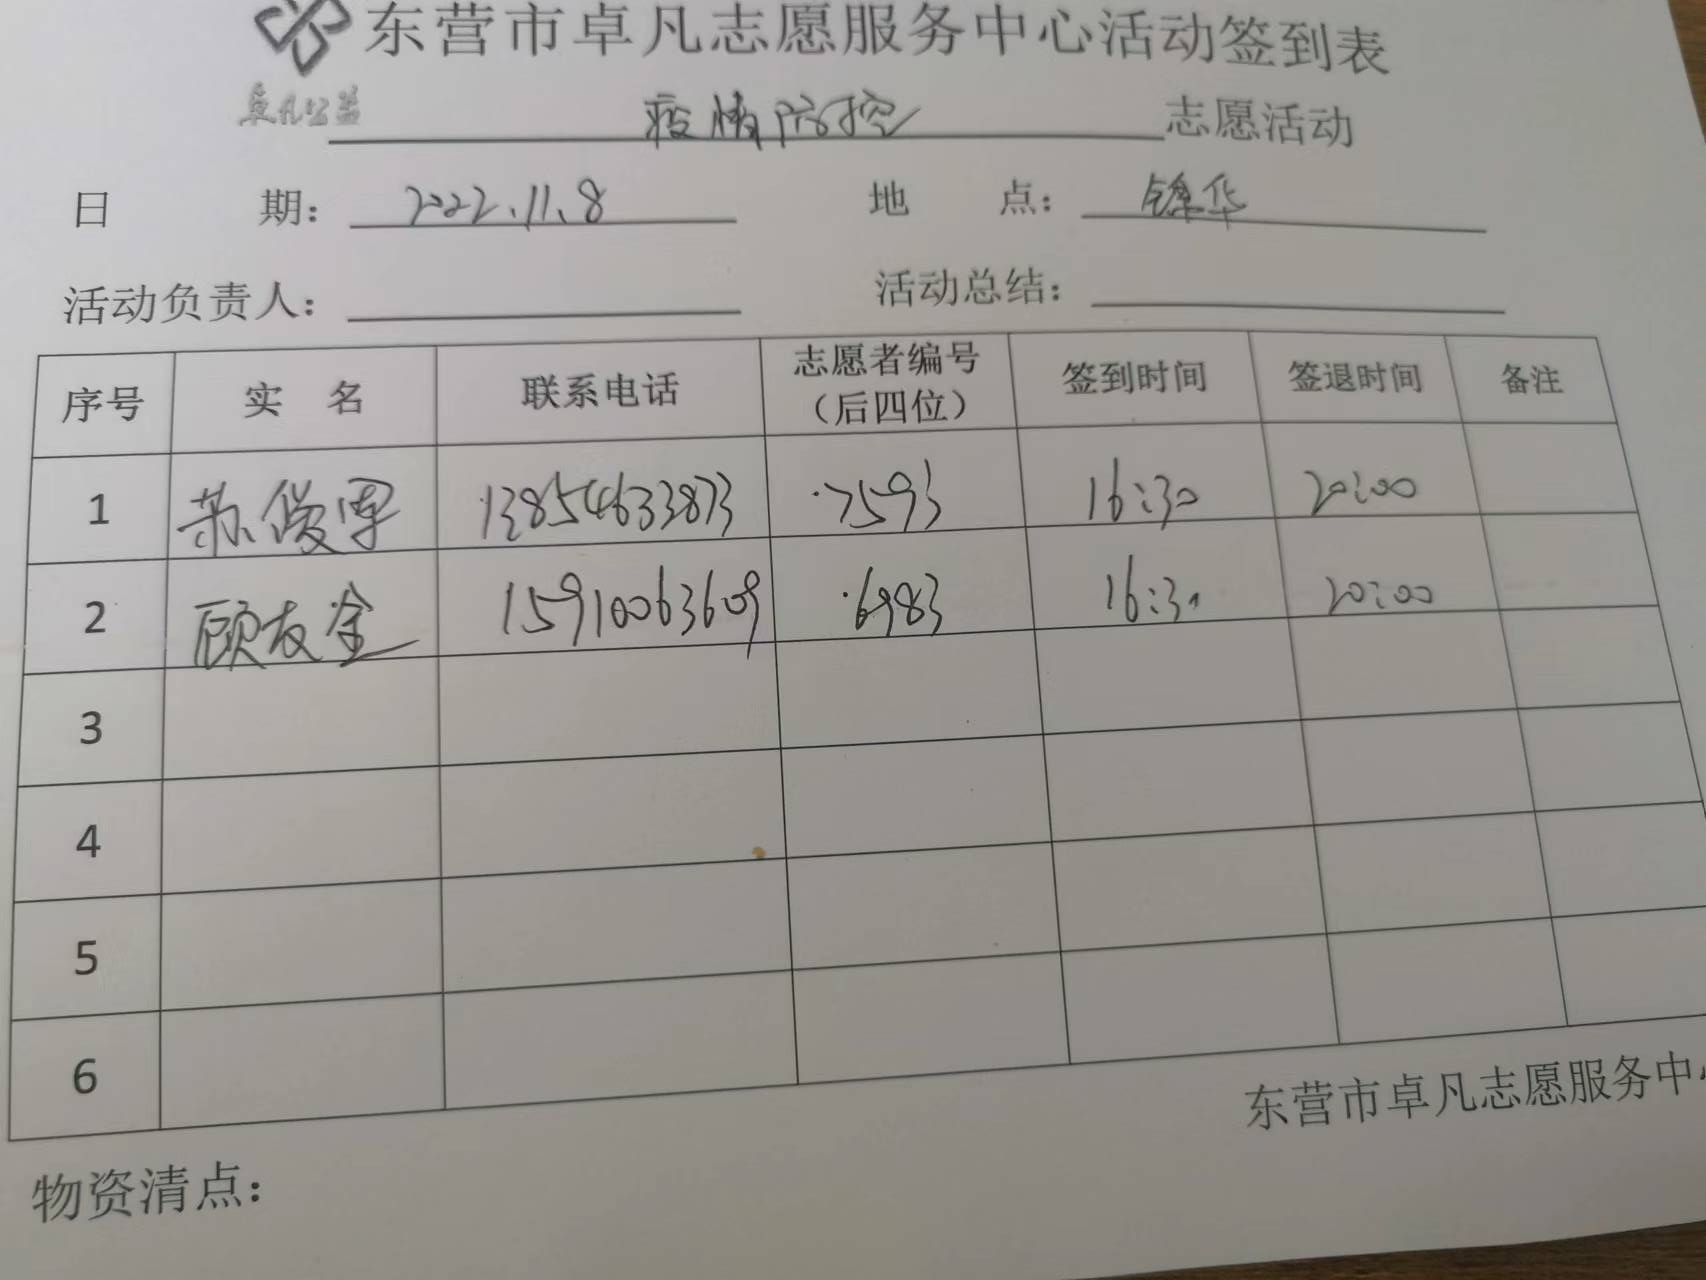 东营市卓凡志愿服务中心活动签到表
卓凡公益
疫情防控 志愿活动
日 期： 2022.11.8 地 点： 锦华
活动负责人： 活动总结：
序号 实 名 联系电话 志愿者编号（后四位） 签到时间 签退时间 备注
1 苏俊军 13854633873 ·7593 16:30 20:00
2 顾友金 15910063609 ·6983 16:30 20:00
3
4
5
6
东营市卓凡志愿服务中
物资清点：